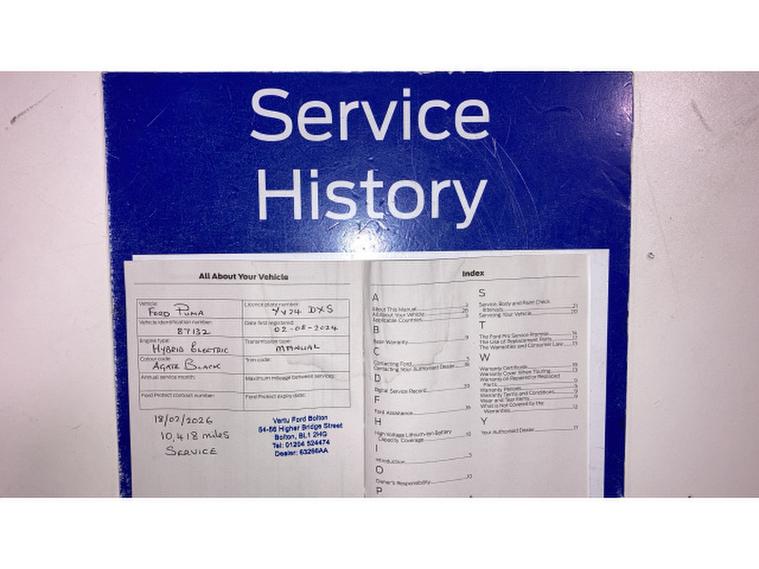 Service
History
All About Your Vehicle
Vehicle:
FORD PUMA
Licence plate number:
YV24 DXS
Vehicle identification number:
87132
Date first registered:
02-08-2024
Engine type:
HYBRID ELECTRIC
Transmission type:
MANUAL
Colour code:
AGATE BLACK
Trim code:
Annual service month:
Maximum mileage between services:
Ford Protect contract number:
Ford Protect expiry date:
18/02/2026
10,418 miles
SERVICE
Vertu Ford Bolton
54-56 Higher Bridge Street
Bolton, BL1 2HG
Tel: 01204 524474
Dealer: 63266AA
Index
A
About This Manual
All About Your Vehicle
Applicable Countries
B
Base Warranty
C
Contacting Ford
Contacting Your Authorised Dealer
D
Digital Service Record
F
Ford Assistance
H
High Voltage Lithium-ion Battery
Capacity Coverage
I
Introduction
O
Owner's Responsibility
P
S
Service, Body and Paint Check
Intervals
Servicing Your Vehicle
T
The Ford Pro Service Promise
The Use of Replacement Parts
The Warranties and Consumer Law
W
Warranty Certificate
Warranty Cover When Touring
Warranty on Repaired or Replaced
Parts
Warranty Periods
Warranty Terms and Conditions
Wear and Tear Items
What is Not Covered by the
Warranties
Y
Your Authorised Dealer